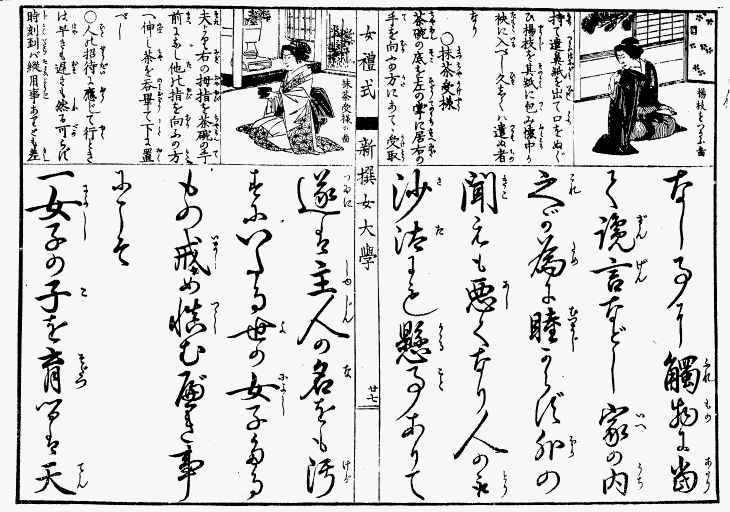 楊枝をつかふ圖
持て直奥紙を出て口をぬぐ
ひ楊枝を其紙に包み懐中か
袂に入べし久しくハ遅ぬ者
なり
○抹茶受様
茶碗の底を左の掌に居右の
手を向ふの方にあて受取
なし事に觸物に當
て讒言などし家の内
之が為に睦からず外の
聞えも悪くなり人の取
沙汰にも懸る事ありて
女禮式 新撰女大學 廿七
抹茶受様の圖
夫より右の拇指を茶碗の手
前になし他の指を向ふの方
へ伸し茶を呑畢て下に置
べし
○人の招待に應じて行とき
は早きも遅きも然る可らず
時刻到バ縦用事ありとも差
遂は主人の名をも汚
すにいたる世の女子たる
もの戒め慎む可き事
にこそ
一女子の子を育るは天